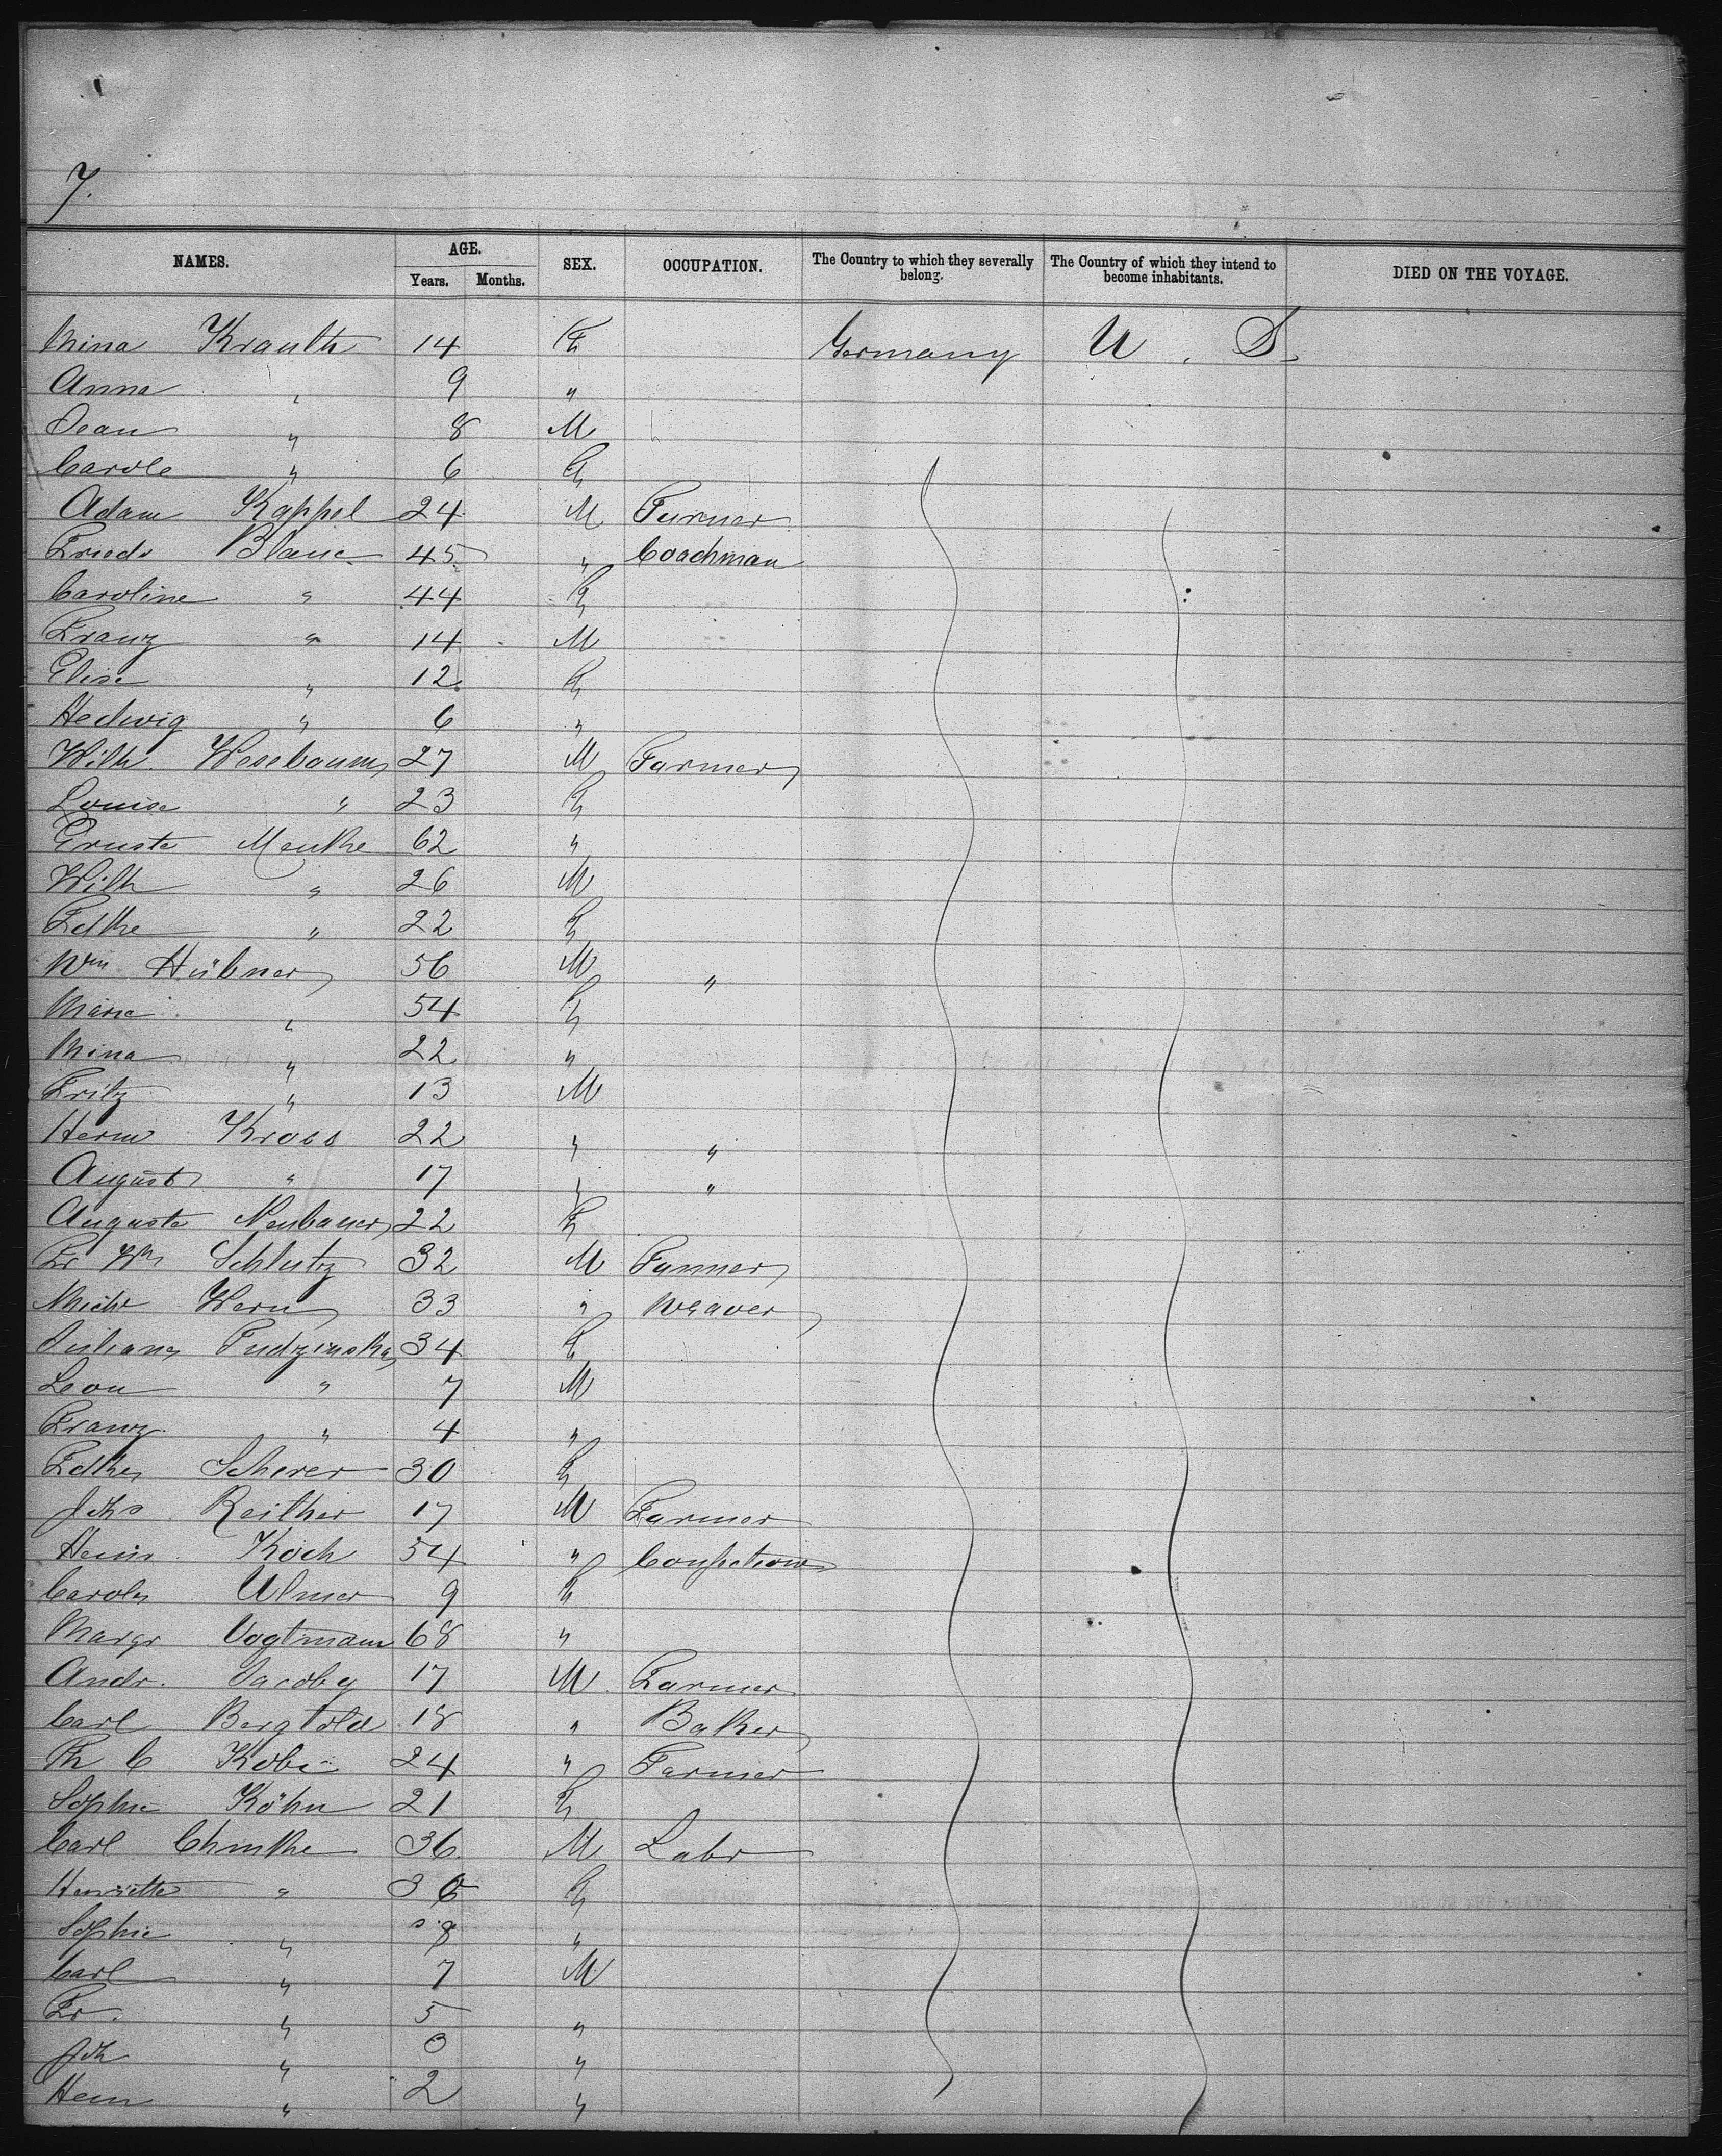 7.
NAMES. AGE. SEX. OCCUPATION. The Country to which they severally belong. The Country of which they intend to become inhabitants. DIED ON THE VOYAGE.
Years. Months.
Mina Krauth 14 F Germany U. S.
Anna " 9 "
Jean " 8 M
Carole " 6 F
Adam Kappel 24 M Turner
Friedr Blanc 45 " Coachman
Caroline " 44 F
Franz " 14 M
Elise " 12 F
Hedwig " 6 "
Wilh. Wesebaum 27 M Farmer
Louise " 23 F
Ernste Menthe 62 "
Wilh " 26 M
Fdke " 22 F
Wm Hübner 56 M "
Marie " 54 F
Mina " 22 "
Fritz " 13 M
Herm Kross 22 " "
August " 17 " "
Auguste Neubauer 22 F
Fr Wm Schlutz 32 M Tanner
Michr Wern 33 " Weaver
Juliana Tudzinska 34 F
Leon " 7 M
Franz " 4 "
Fdke Scherer 30 F
Johs Reither 17 M Farmer
Heinr. Koch 54 " Confection
Carole Ulmer 9 F
Margr Vogtmann 68 "
Andr. Jacoby 17 M Farmer
Carl Bergtold 18 " Baker
Th C Kobi 24 " Farmer
Sophie Köhn 21 F
Carl Chmilke 36 M Labr
Henriette " 36 F
Sophie " 8 "
Carl " 7 M
Fr. " 5 "
Joh " 3 "
Hein " 2 "